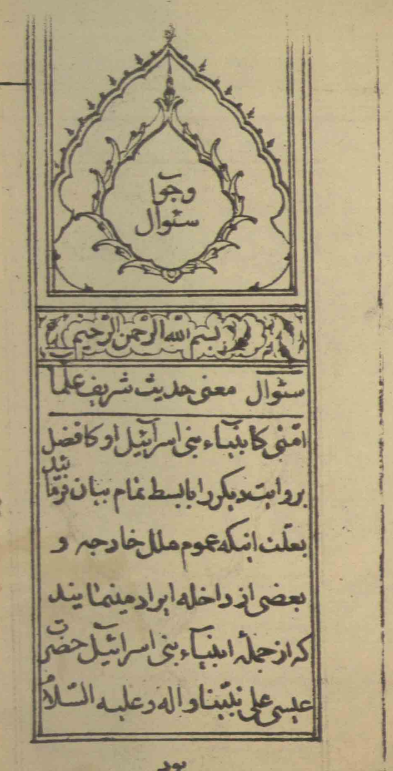 سئوال
وجوا
بسم الله الرحمن الرحیم
سئوال معنی حدیث شریف علما
امتی کانبیاء بنی اسرائیل او کافضل
بروایت دیکر را با بسط تمام بیان فرمائید
بعلت اینکه عموم ملل خارجه و
بعضی از داخله ایراد مینمایند
که از جملۀ انبیاء بنی اسرائیل حضرت
عیسی علی نبینا و اله و علیه السلام
بود